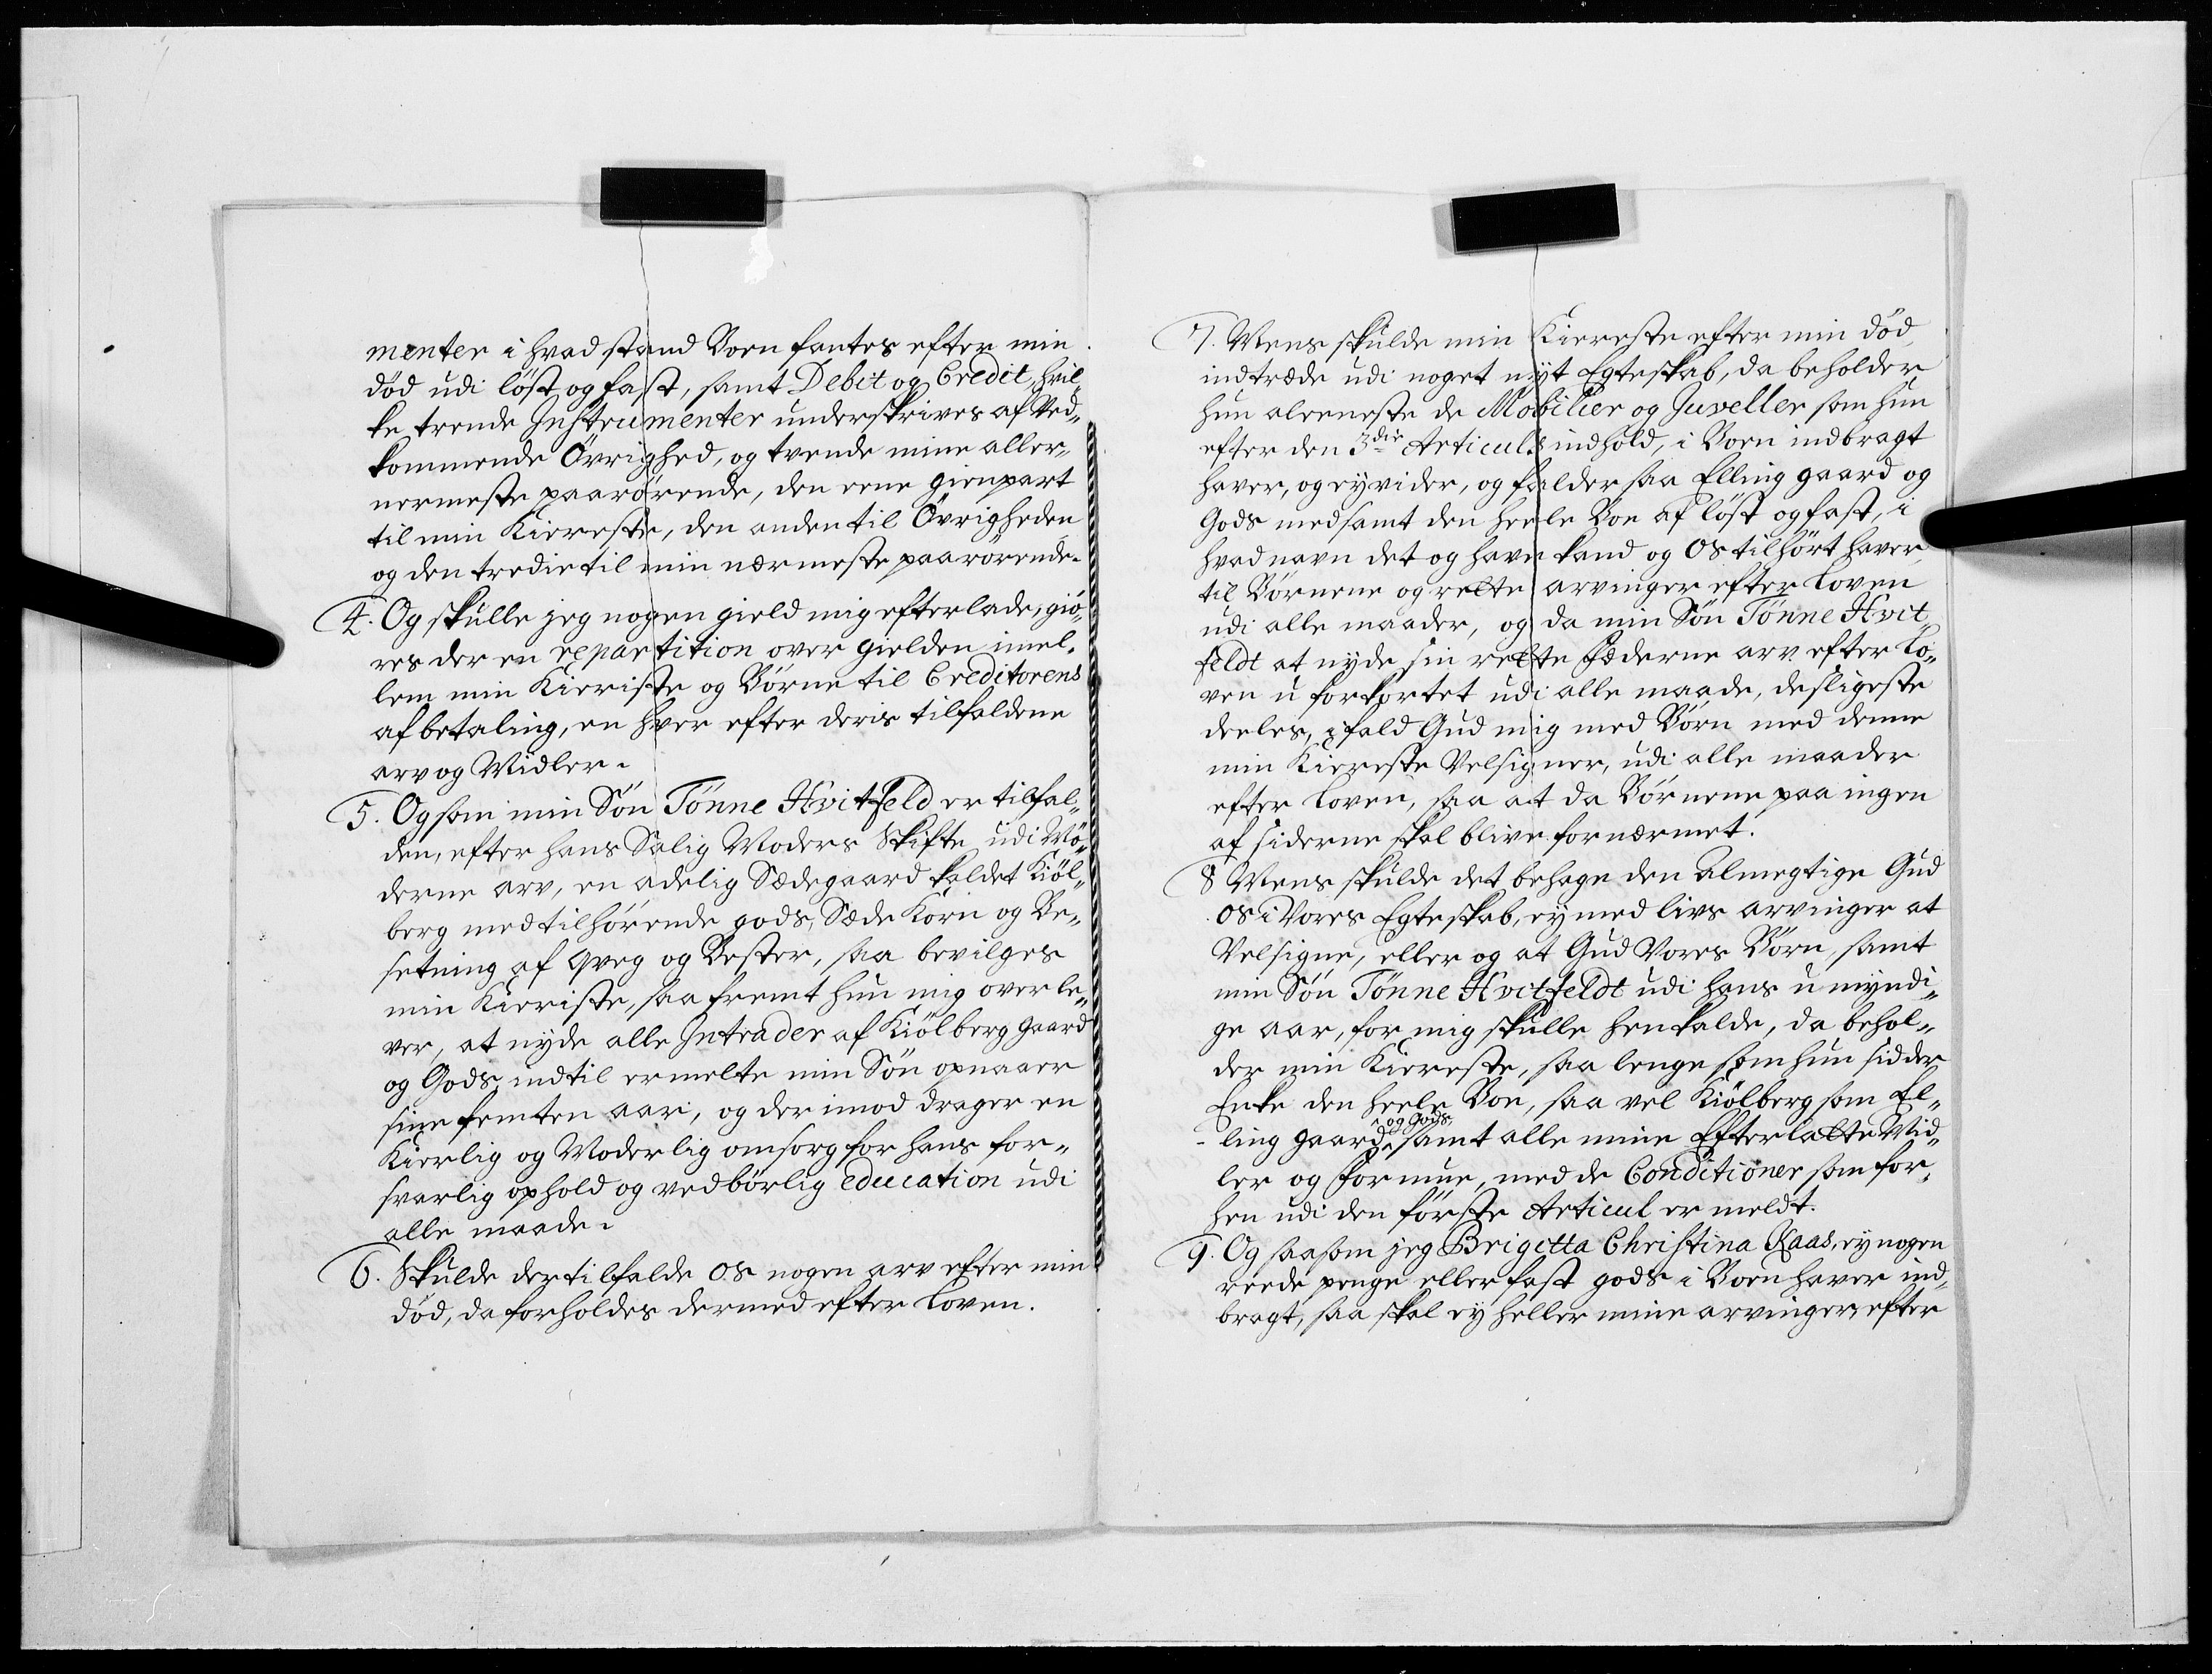 menter i hvad stand Boen fantes efter min
död udi löst og fast, samt Debit og Credit, hvil„
ke trende Instrumenter underskrives af Ved„
kommende Övrighed, og tvende mine aller„
nermeste paarörende, den eene gienpart
til min Kiereste, den anden til Övrigheden
og den tredie til min nærmeste paarörende.
4. Og skulle jeg nogen gield mig efterlade, giö„
res der en repartition over gielden imel„
lem min Kieriste og Börne til Creditorens
afbetaling, en hver efter deris tilfaldene
arv og Midler.
5. Og som min Sön Tönne Hvitfeld er tilfal„
den, efter hans Salig Moders Skifte udi Mö„
derne arv, en adelig Sædegaard kaldet Kiöl„
berg med tilhörende gods, Sæde Korn og Be„
setning af qveg og Bester, saa bevilges
min Kieriste, saa fremt hun mig overle„
ver, at nyde alle Intrader af Kiölberg gaard
og Gods indtil ermelte min Sön opnaaer
sine femten aar, og der imod drager en
Kierlig og Moderlig omsorg for hans for„
svarlig ophold og vedbörlig education udi
alle maade.
6. Skulde der tilfalde os nogen arv efter min
död, da forholdes dermed efter Loven.
7. Mens skulde min Kiereste efter min död,
indtræde udi noget nyt Egteskab, da beholder
hun aleeneste de Mobilier og Juveller som hun
efter den 3die Articuls indhold, i Boen indbragt
haver, og ey vider, og falder saa Elling gaard og
Gods med samt den heele Boe af löst og fast, i
hvad navn det og have kand og os tilhört haver,
til Börnene og rette arvinger efter Loven
udi alle maader, og da min Sön Tönne Hvit„
feldt at nyde sin rette Fæderne arv efter Lo„
ven u forkortet udi alle maade, desligeste
deeles, i fald Gud mig med Börn med denne
min Kiereste Velsigner, udi alle maader
efter Loven, saa at da Börnene paa ingen
af siderne skal blive fornærmet.
8 Mens skulde det behage den Almegtige Gud
os i Vores Egteskab, ey med livs arvinger at
Velsigne, eller og at Gud Vores Börn, samt
min Sön Tönne Hvitfeldt udi hans u myndi„
ge aar, for mig skulle henkalde, da behol„
der min Kiereste, saa lenge som hun sidder
Enke den heele Boe, saa vel Kiölberg som El„
ling gaard og Gods samt alle mine Efterlatte Mid„
ler og Formue, med de Conditioner som for„
hen udi den förste Articul er meldt.
9. Og saasom jeg Brigitta Christina Kaas, ey nogen
reede penge eller fast gods i Boen haver ind„
bragt, saa skal ey heller mine arvinger, efter